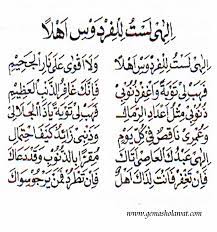 اِلٰهِيْ لَسْتُ لِلْفِرْدَوْسِ اَهْلًا
اِلٰهِيْ لَسْتُ لِلْفِرْدَوْسِ اَهْلًا وَلاَ اَقْوٰى عَلَى نَارِ الْجَحِيْمِ
فَهَبْ لِيْ تَوْبَةً وَاغْفِرْ ذُنُوْبِيْ فَاِنَّكَ غَافِرُ الذَّنْبِ الْعَظِيْمِ
ذُنُوْبِيْ مِثْلُ اَعْدَادِ الرِّمَالِ فَهَبْ لِيْ تَوْبَةً يَاذَا الْجَلاَلِيْ
وَعُمْرِيْ نَاقِصٌ فِيْ كُلِّ يَوْمٍ وَذَنْبِيْ زَائِدٌ كَيْفَ احْتِمَالِ
اِلٰهِيْ عَبْدُكَ الْعَاصِيْ اَتَاكَ مُقِرًّا بِالذُّنُوْبِ وَقَدْ دَعَاكَ
فَاِنْ تَغْفِرْ فَاَنْتَ لِذَاكَ اَهْلٌ فَاِنْ تَطْرُدْ فَمَنْ نَرْجُوْ سِوَاكَ
www.gemasholawat.com